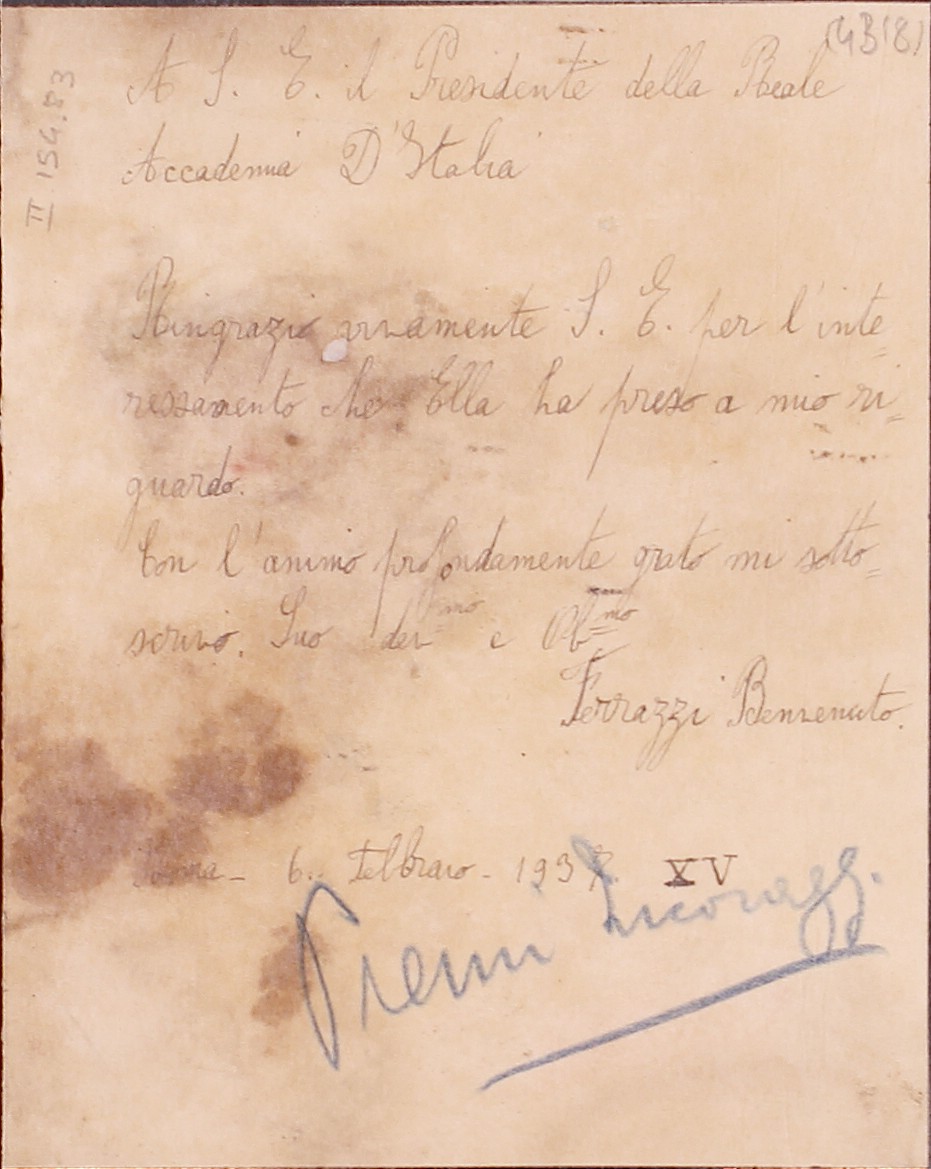 (4B18)
II 154.83
A S. E. il Presidente della Reale
Accademia D'Italia
Ringrazio vivamente S. E. per l'inte=
ressamento che Ella ha preso a mio ri=
guardo.
Con l'animo profondamente grato mi sotto=
scrivo. Suo dev mo e Obb mo
Ferrazzi Benvenuto.
Roma - 6. Febbraio - 1937. XV
Premi Incoragg.